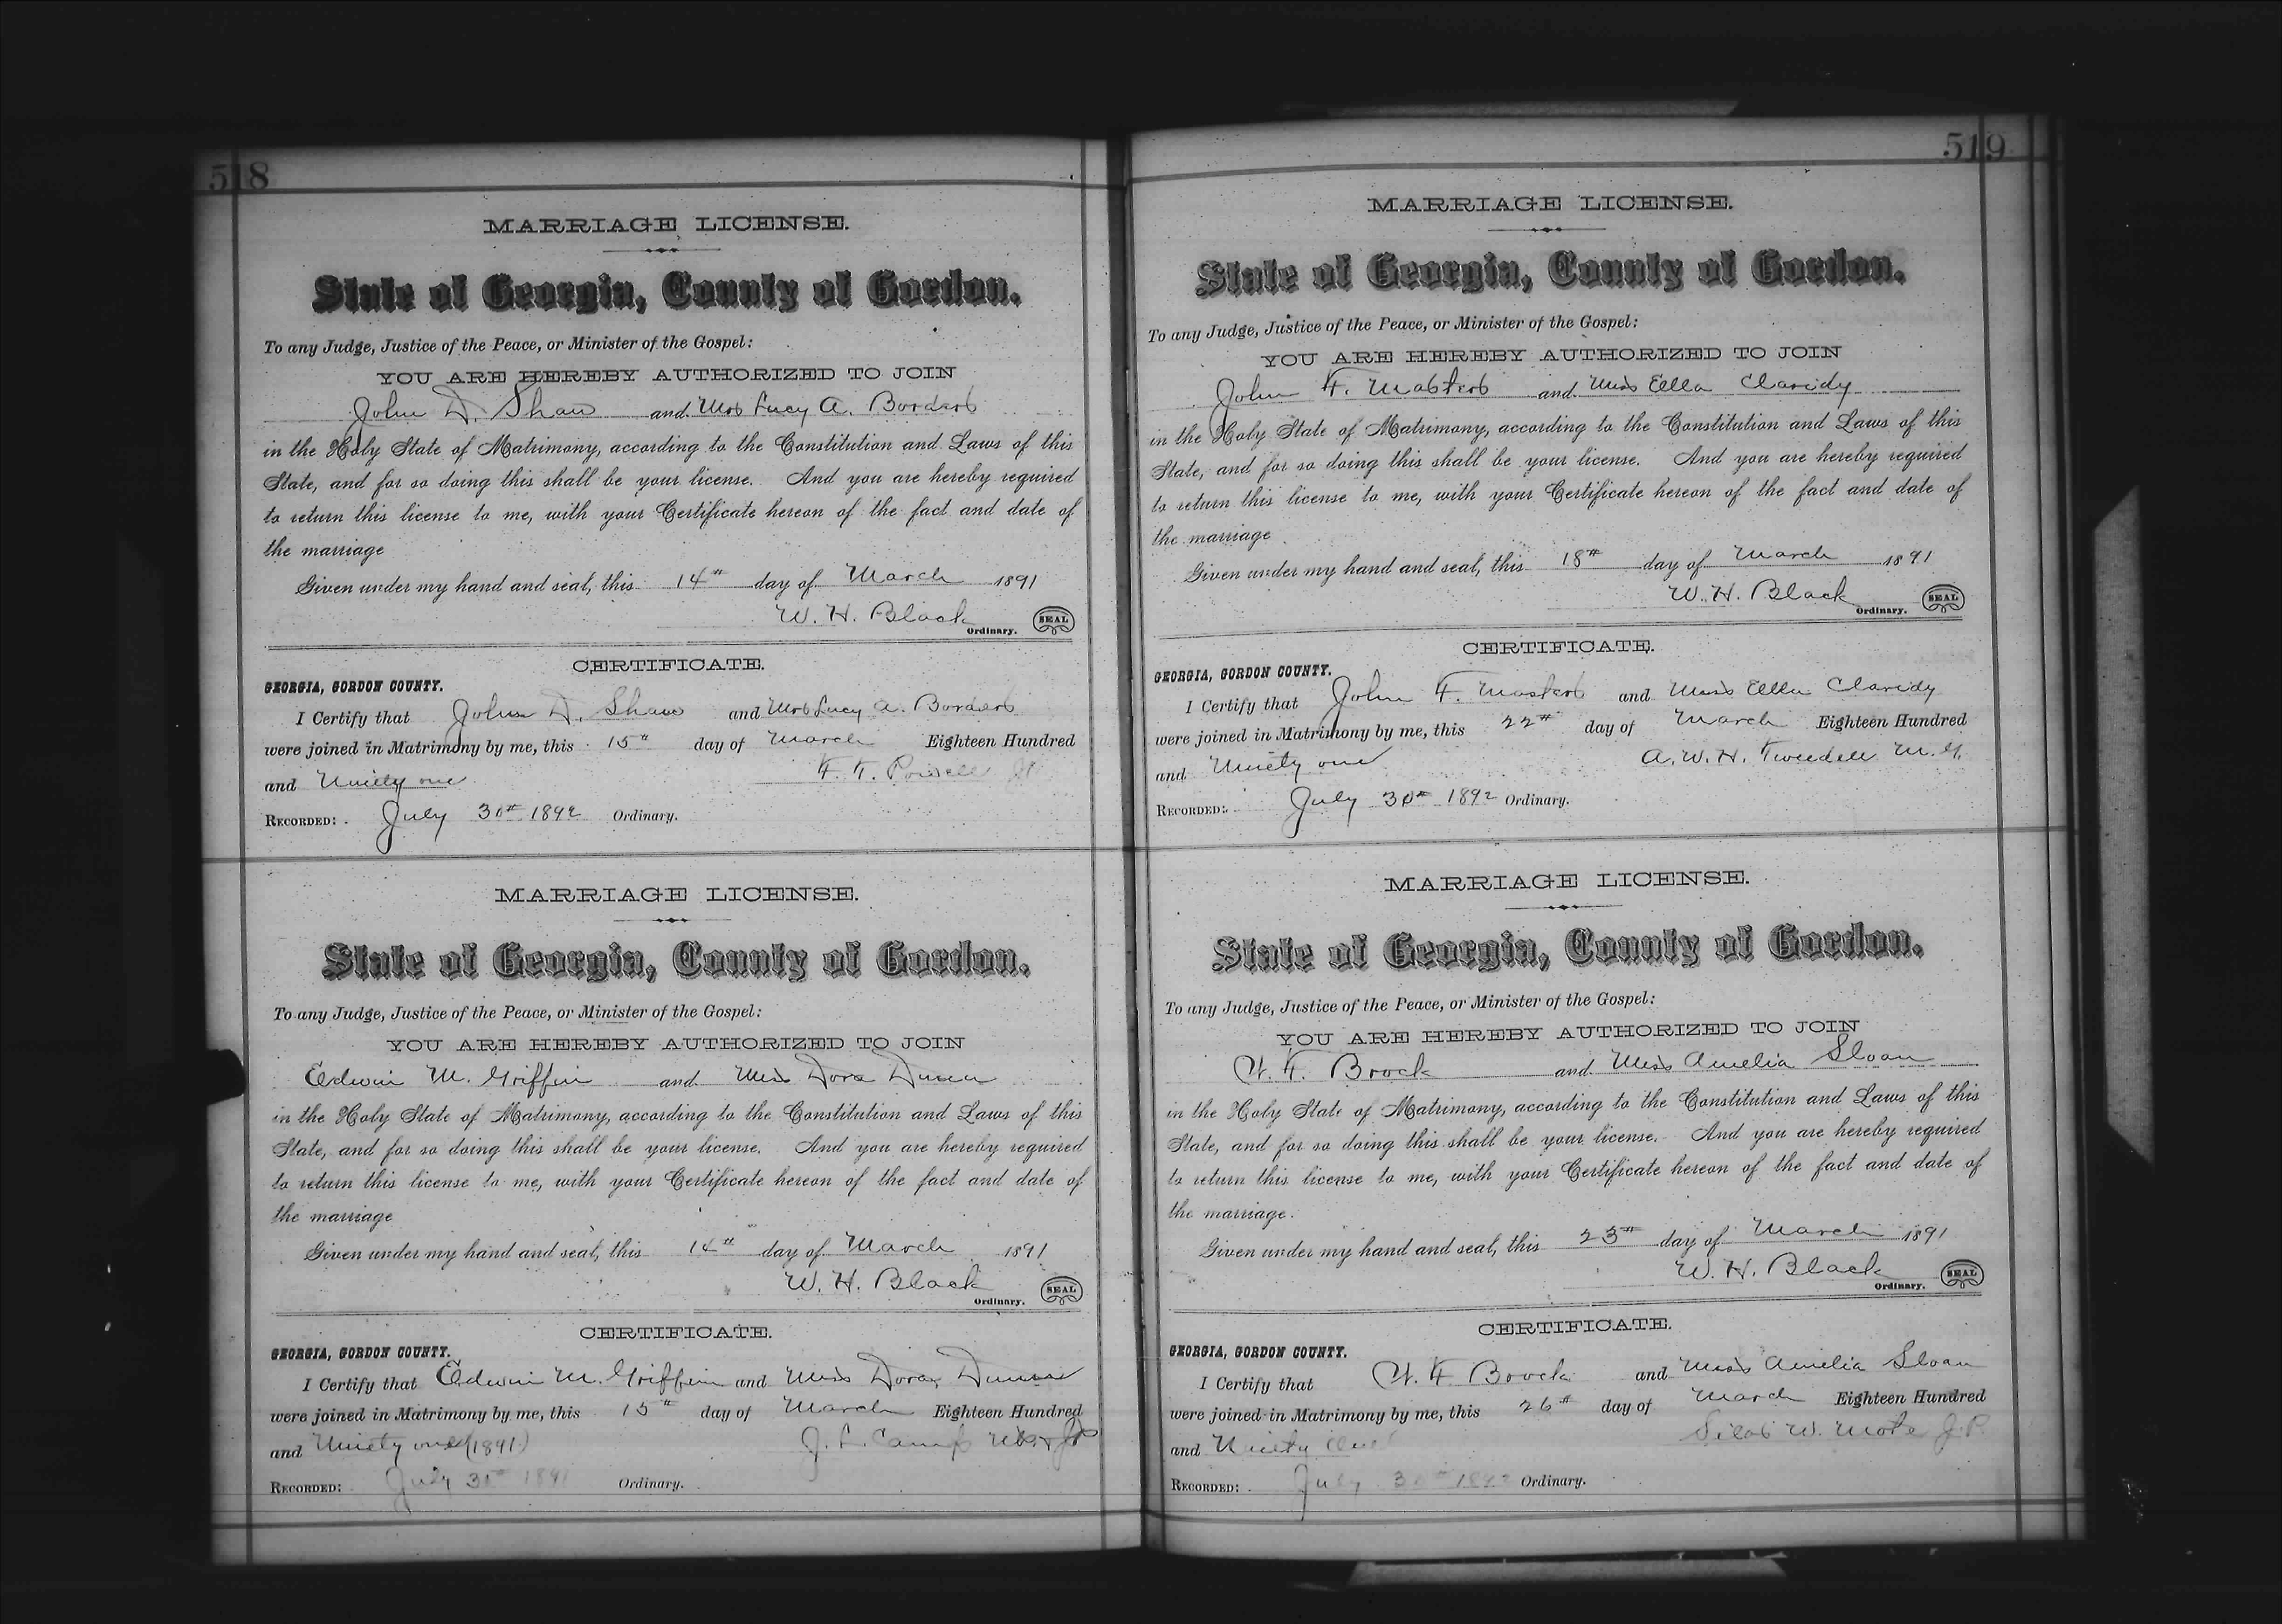 518
MARRIAGE LICENSE.
State of Georgia, County of Gordon.
To any Judge, Justice of the Peace, or Minister of the Gospel:
YOU ARE HEREBY AUTHORIZED TO JOIN
John D. Shaw and Mrs Lucy A. Borders
in the Holy State of Matrimony, according to the Constitution and Laws of this
State, and for so doing this shall be your license. And you are hereby required
to return this license to me, with your Certificate hereon of the fact and date of
the marriage
Given under my hand and seal, this 14th day of March 1891
W. H. Black
Ordinary. SEAL
CERTIFICATE.
GEORGIA, GORDON COUNTY.
I Certify that John D. Shaw and Mrs Lucy A. Borders
were joined in Matrimony by me, this 15th day of March Eighteen Hundred
and Ninety one F. T. Powell
RECORDED: July 30th 1892 Ordinary.
MARRIAGE LICENSE.
State of Georgia, County of Gordon.
To any Judge, Justice of the Peace, or Minister of the Gospel:
YOU ARE HEREBY AUTHORIZED TO JOIN
Edwin M. Griffin and Miss Dora Dunn
in the Holy State of Matrimony, according to the Constitution and Laws of this
State, and for so doing this shall be your license. And you are hereby required
to return this license to me, with your Certificate hereon of the fact and date of
the marriage
Given under my hand and seal, this 14th day of March 1891
W. H. Black
Ordinary. SEAL
CERTIFICATE.
GEORGIA, GORDON COUNTY.
I Certify that Edwin M. Griffin and Miss Dora Dunn
were joined in Matrimony by me, this 15th day of March Eighteen Hundred
and Ninety one (1891) J. L. Camp
RECORDED: July 30th 1891 Ordinary.
519
MARRIAGE LICENSE.
State of Georgia, County of Gordon.
To any Judge, Justice of the Peace, or Minister of the Gospel:
YOU ARE HEREBY AUTHORIZED TO JOIN
John F. Masters and Miss Ella Claridy
in the Holy State of Matrimony, according to the Constitution and Laws of this
State, and for so doing this shall be your license. And you are hereby required
to return this license to me, with your Certificate hereon of the fact and date of
the marriage
Given under my hand and seal, this 18th day of March 1891
W. H. Black
Ordinary. SEAL
CERTIFICATE.
GEORGIA, GORDON COUNTY.
I Certify that John F. Masters and Miss Ella Claridy
were joined in Matrimony by me, this 22nd day of March Eighteen Hundred
and Ninety one A. W. H. Tweedell M. G.
RECORDED: July 30th 1892 Ordinary.
MARRIAGE LICENSE.
State of Georgia, County of Gordon.
To any Judge, Justice of the Peace, or Minister of the Gospel:
YOU ARE HEREBY AUTHORIZED TO JOIN
F. Brock and Miss Amelia Sloan
in the Holy State of Matrimony, according to the Constitution and Laws of this
State, and for so doing this shall be your license. And you are hereby required
to return this license to me, with your Certificate hereon of the fact and date of
the marriage.
Given under my hand and seal, this 23rd day of March 1891
W. H. Black
Ordinary. SEAL
CERTIFICATE.
GEORGIA, GORDON COUNTY.
I Certify that F. Brock and Miss Amelia Sloan
were joined in Matrimony by me, this 26th day of March Eighteen Hundred
and Ninety One Silas W. Mote J. P.
RECORDED: July 30th 1892 Ordinary.